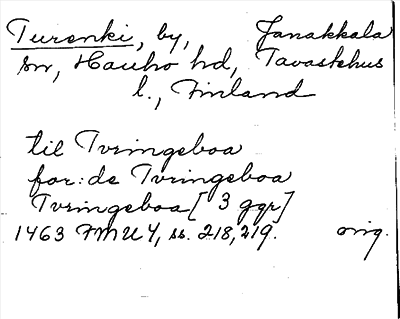 Turenki, by, Janakkala
sn, Hauho hd, Tavastehus
l., Finland
til Tvringeboa
for: de Tvringeboa
Tvringeboa [3 ggr]
1463 FMU 4, ss. 218, 219. orig.